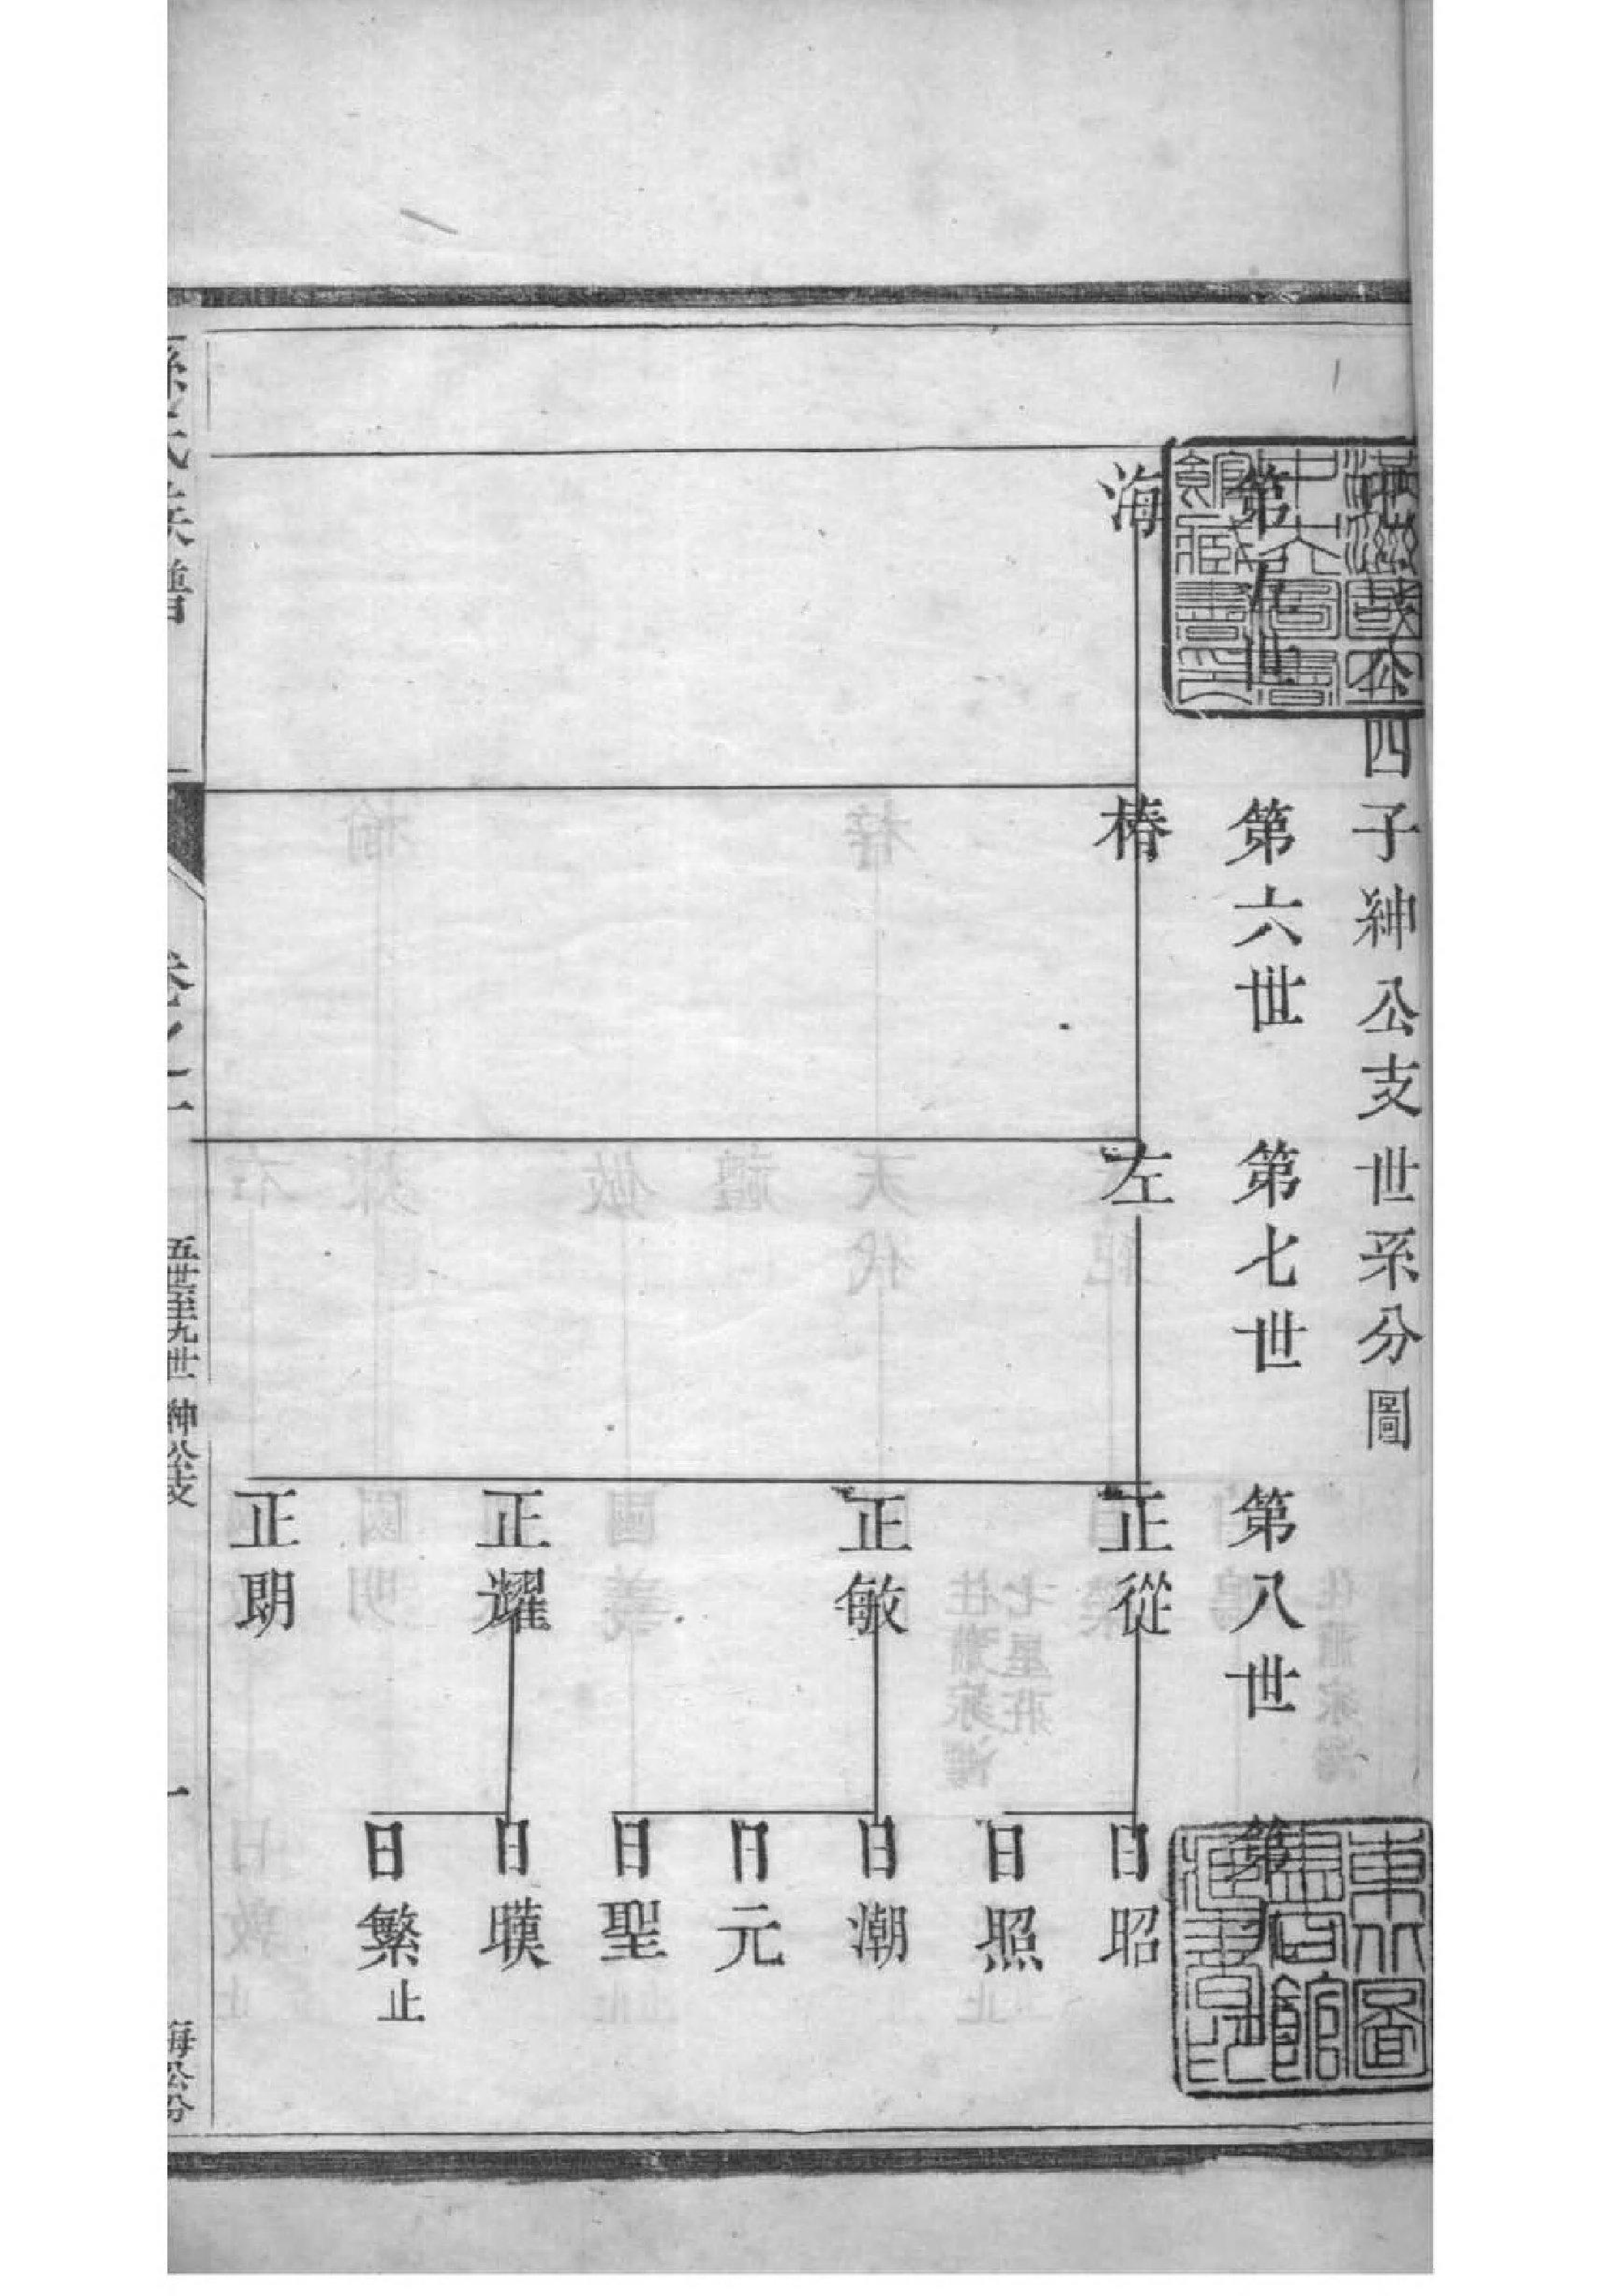 公四子紳公支世系分圖
第五世
第六世
第七世
第八世
第九
海
椿
左
正從
正敏
正耀
正朗
日昭
日照
日潮
日元
日聖
日暵
日繁止
孫氏族譜
卷之二
五世至九世
紳公支
一
海公分